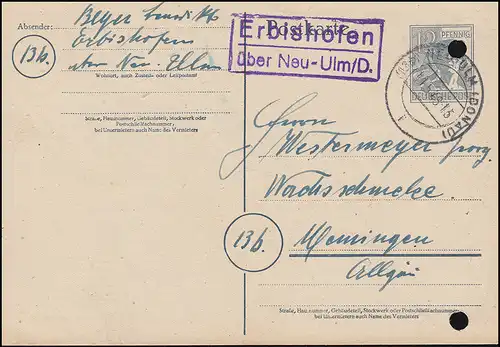 Postkarte
Absender:
Beyer Benedikt
Erbishofen
über Neu-Ulm
13b.
Wohnort, auch Zustell- oder Leitpostamt
Straße, Hausnummer, Gebäudeteil, Stockwerk oder
Postschließfachnummer,
bei Untermietern auch Name des Vermieters
Erbishofen
über Neu-Ulm/D.
12 PFENNIG
DEUTSCHE POST
ULM (DONAU)
Herrn
Westermeyer Georg
Wachsschmelze
13b.
Memmingen
Allgäu
Straße, Hausnummer, Gebäudeteil, Stockwerk oder Postschließfachnummer,
bei Untermietern auch Name des Vermieters